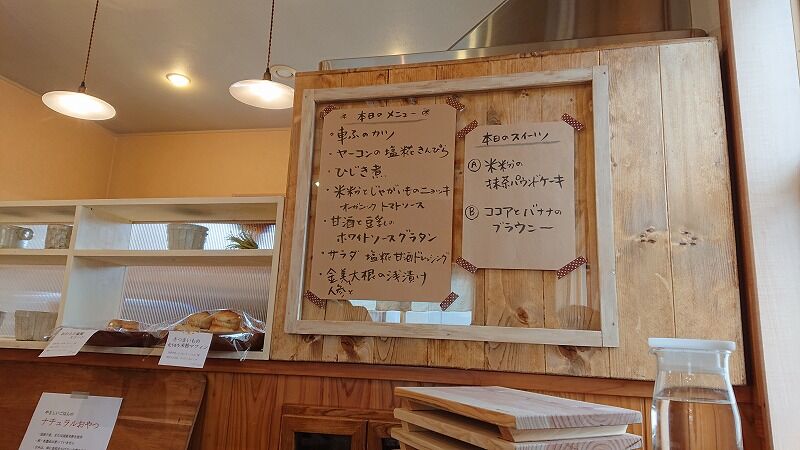 本日のメニュー
・車ふのカツ
・ヤーコンの塩糀きんぴら
・ひじき煮
・米粉とじゃがいものニョッキ
オーガニックトマトソース
・甘酒と豆乳の
ホワイトソースグラタン
・サラダ 塩糀甘酒ドレッシング
・金美大根の浅漬け
人参と
本日のスイーツ
Ⓐ 米粉の
抹茶パウンドケーキ
Ⓑ ココアとバナナの
ブラウニー
さつまいもの
米粉マフィン
やさしいごはんの
ナチュラルおやつ